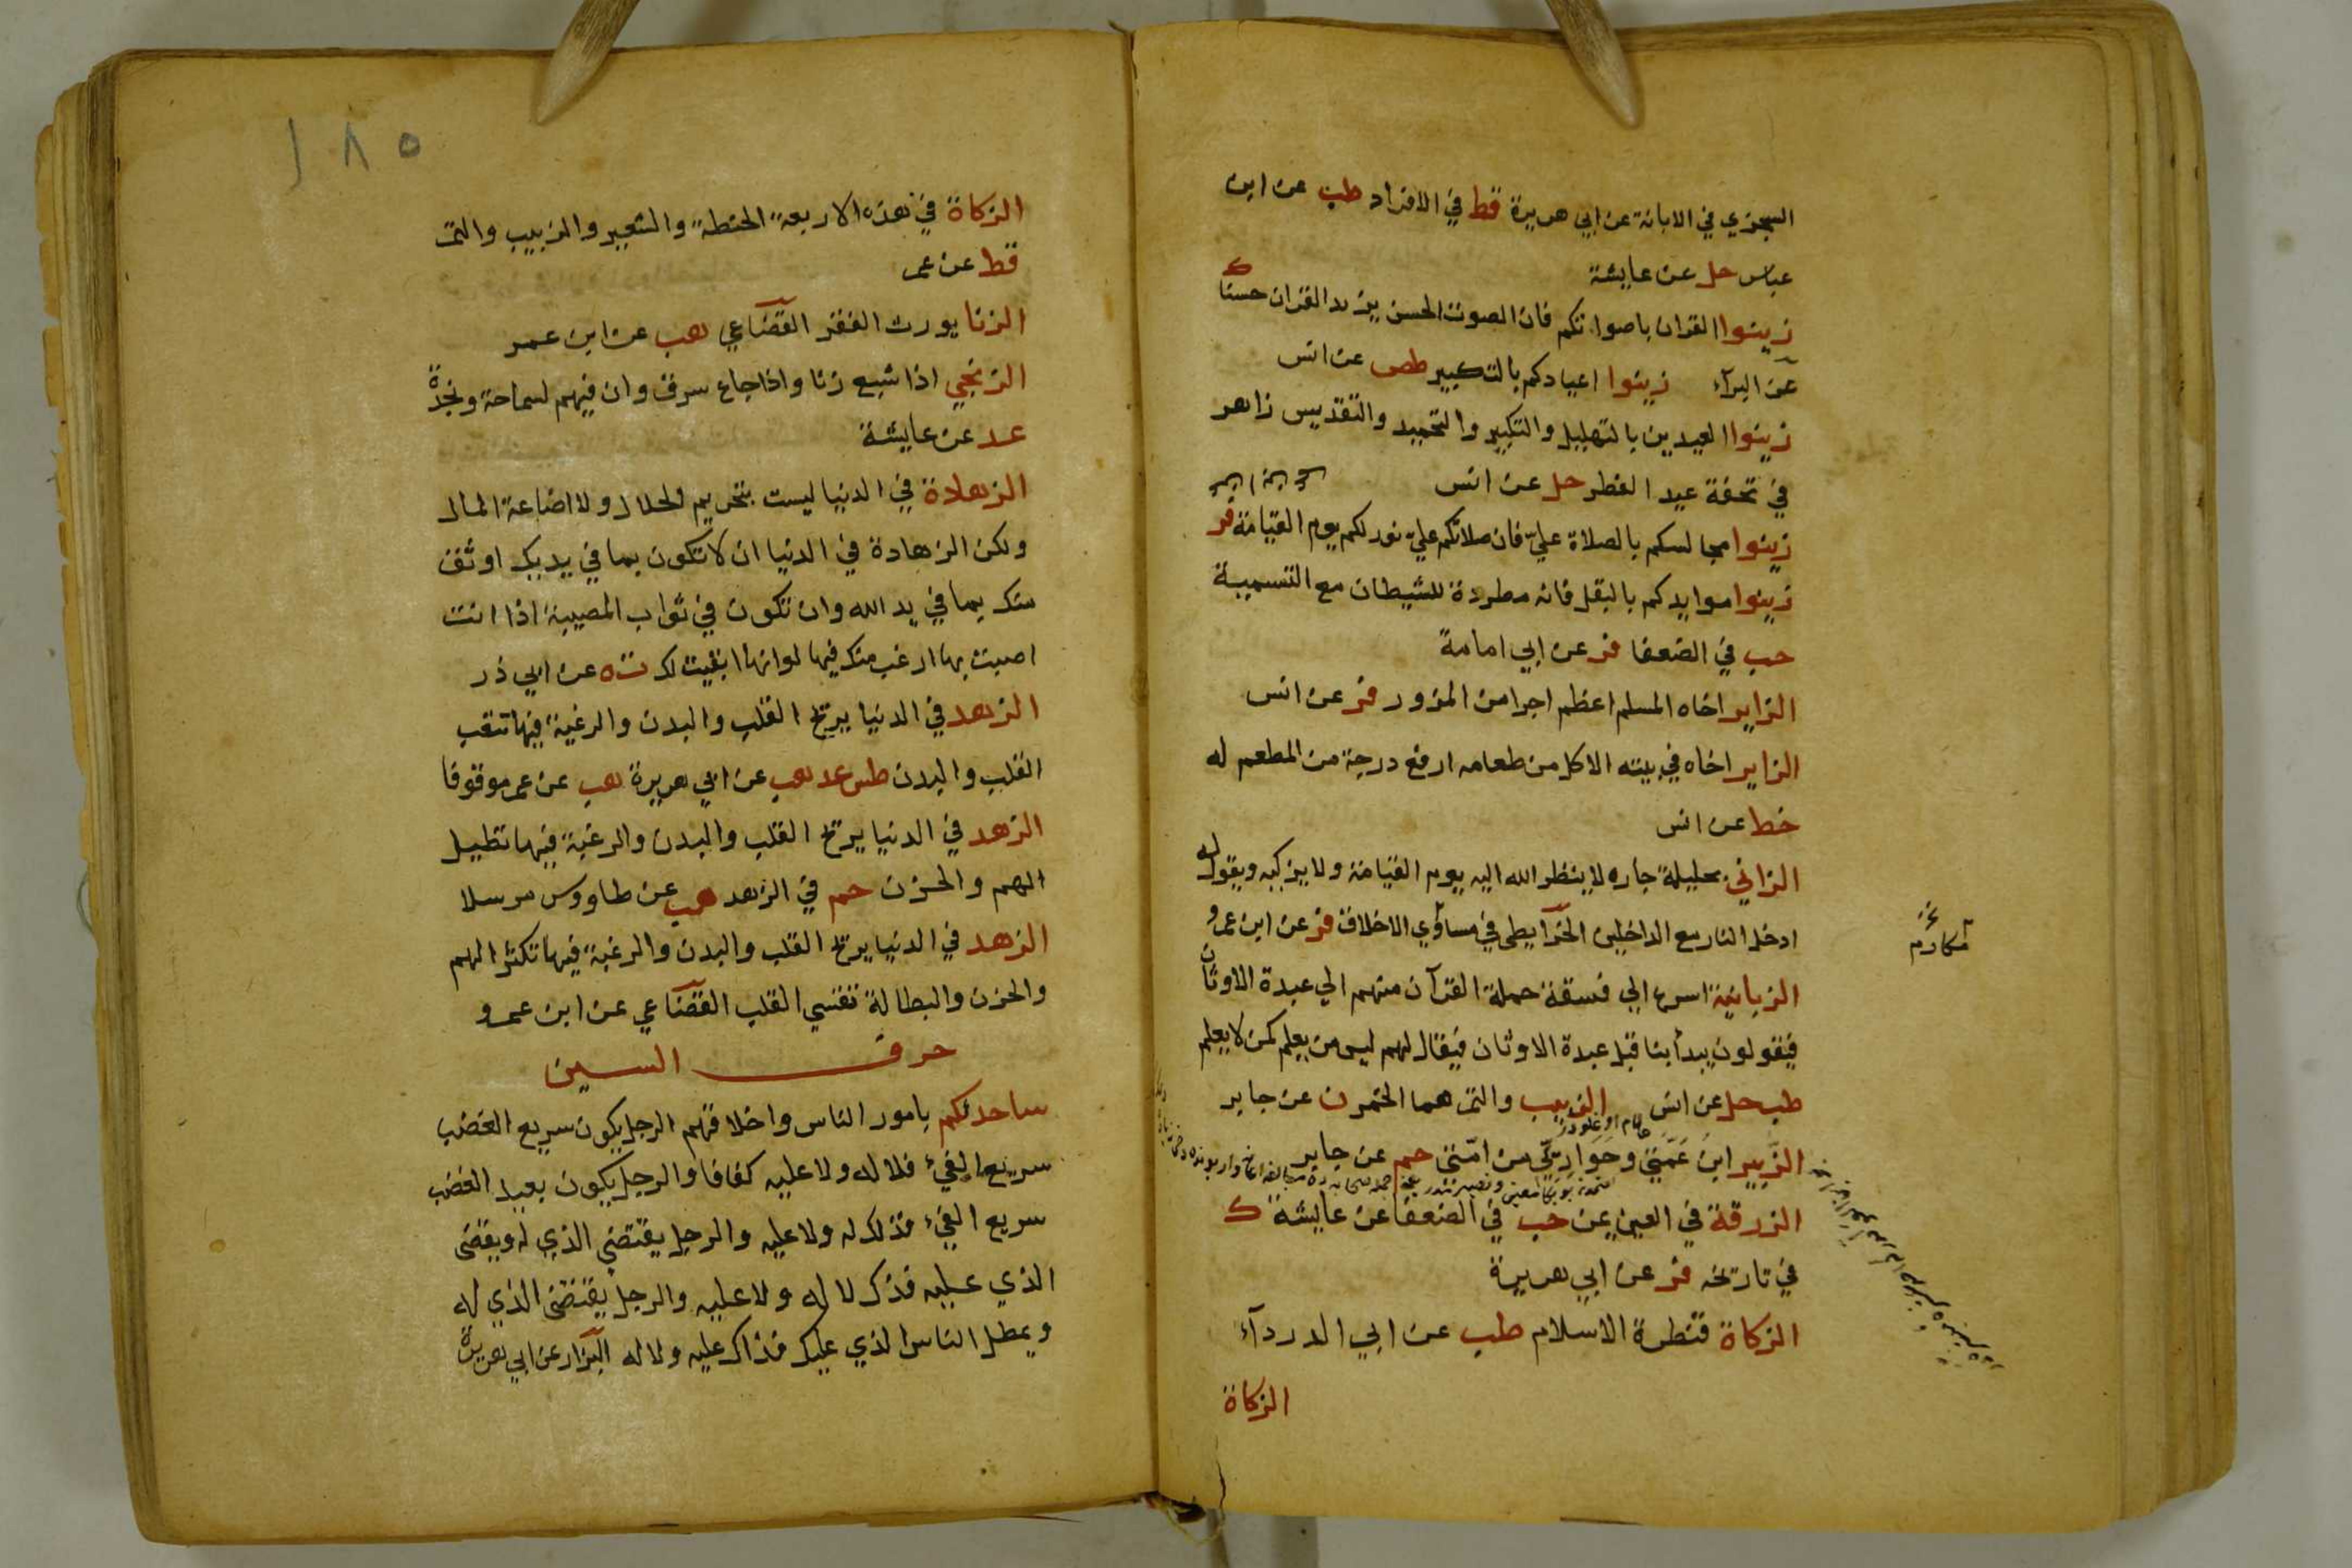 السجزي في الابانة عن ابي هريرة قط في الافراد طب عن ابن
عباس حل عن عايشة
زينوا القران باصواتكم فان الصوت الحسن يزيد القران حسنا ك
عن البرآء زينوا اعيادكم بالتكبير طص عن انس
زينوا العيدين بالتهليل والتكبير والتحميد والتقديس زاهر
في تحفة عيد الفطر حل عن انس
زينوا مجالسكم بالصلاة عليّ فان صلاتكم عليّ نور لكم يوم القيامة فر
زينوا موايدكم بالبقل فانه مطردة للشيطان مع التسمية
حب في الضعفا فر عن ابي امامة
الزاير اخاه المسلم اعظم اجرا من المزور فر عن انس
الزاير اخاه في بيته الاكل من طعامه ارفع درجة من المطعم له
خط عن انس
الزاني بحليلة جاره لا ينظر الله اليه يوم القيامة ولا يزكيه ويقول له
ادخل النار مع الداخلين الخرآيطي في مساؤي الاخلاق فر عن ابن عمرو
مكارم
الزبانية اسرع الي فسقة حملة القرآن منهم الي عبدة الاوثان
فيقولون يبدأ بنا قبل عبدة الاوثان فيقال لهم ليس من يعلم كمن لا يعلم
طب حل عن انس الزبيب والتمر هما الخمر ن عن جابر
الزّبير ابن عَمَّتِي وحَوَارِيّي من امّتي حم عن جابر
الزرقة في العين يمن حب في الضعفا عن عايشة ك
في تاريخه فر عن ابي هريرة
الزكاة قنطرة الاسلام طب عن ابي الدردآء
الزكاة
١٨٥
الزكاة في هذه الاربعة الحنطة والشعير والزبيب والتمر
قط عن عمر
الزنا يورث الفقر القضاعي هب عن ابن عمر
الزنجي اذا شبع زنا واذا جاع سرق وان فيهم لسماحة ونجدة
عد عن عايشة
الزهادة في الدنيا ليست بتحريم الحلال ولا اضاعة المال
ولكن الزهادة في الدنيا ان لا تكون بما في يديك اوثق
منك بما في يد الله وان تكون في ثواب المصيبة اذا انت
اصبت بها ارغب منك فيها لو انها ابقيت لك ت ه عن ابي ذر
الزهد في الدنيا يريح القلب والبدن والرغبة فيها تتعب
القلب والبدن طس عد هب عن ابي هريرة هب عن عمر موقوفا
الزهد في الدنيا يريح القلب والبدن والرغبة فيها تطيل
الهم والحزن حم في الزهد هب عن طاووس مرسلا
الزهد في الدنيا يريح القلب والبدن والرغبة فيها تكثر الهم
والحزن والبطالة تقسي القلب القضاعي عن ابن عمرو
حرف السين
ساحدثكم بامور الناس واخلاقهم الرجل يكون سريع الغضب
سريع الفئ فلا له ولا عليه كفافا والرجل يكون بعيد الغضب
سريع الفئ فذلك له ولا عليه والرجل يقتضي الذي له ويقضي
الذي عليه فذك لا له ولا عليه والرجل يقتضي الذي له
ويمطل الناس الذي عليك فذاك عليه ولا له البزار عن ابي هريرة